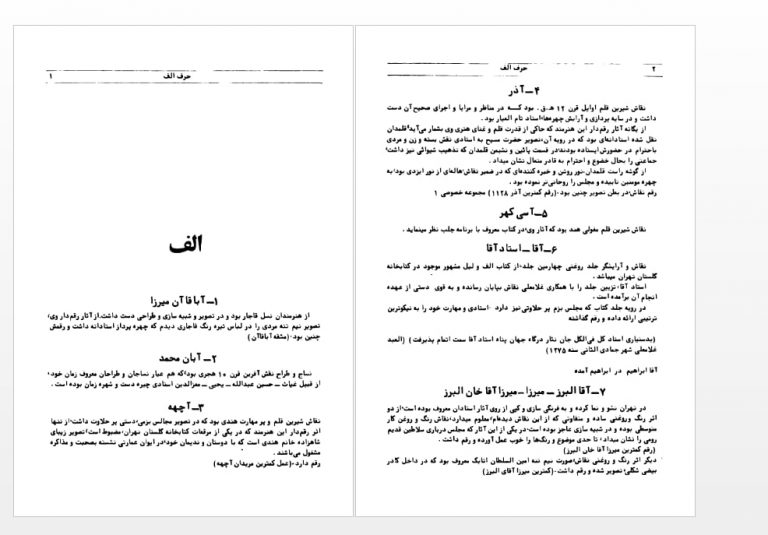 حرف الف
۱
الف
۱ــ آبا قا آن میرزا
از هنرمندان نسل قاجار بود و در تصویر و شبیه سازی و طراحی دست داشت. از آثار رقم‌دار وی،
تصویر نیم تنه مردی را در لباس تیره رنگ قاجاری دیدم که چهره پرداز استادانه داشت و رقمش
چنین بود: (مشقه آباقاآن)
۲ــ آبان محمد
نساج و طراح نقش‌آفرین قرن ۱۰ هجری بود، که هم عیار نساجان و طراحان معروف زمان خود،
از قبیل غیاث ــ حسین عبدالله ــ یحیی ــ معزالدین استادی چیره دست و شهره زمان بوده است .
۳ــ آچهه
نقاش شیرین قلم و پر مهارت هندی بود که در تصویر مجالس بزمی، دستی پر حلاوت داشت، از تنها
اثر رقم‌دار این هنرمند که در یکی از مرقعات کتابخانه گلستان تهران، مضبوط است، تصویر زیبای
شاهزاده خانم هندی است که با دوستان و ندیمان خود، در ایوان عمارتی نشسته بصحبت و مذاکره
مشغول می‌باشند .
رقم دارد، (عمل کمترین مریدان آچهه)
حرف الف
۲
۴ــ آذر
نقاش شیرین قلم اوایل قرن ۱۲ هـ.ق . بود کــه در مناظر و مرایا و اجرای صحیح آن دست
داشت و در سایه پردازی و آرایش چهره‌ها، استاد تام العیار بود .
از یگانه آثار رقم‌دار این هنرمند که حاکی از قدرت قلم و غنای هنری وی بشمار می‌آید، قلمدان
نقل شده استادانه‌ای بود که در رویه آن، تصویر حضرت مسیح به استادی نقش بسته و زن و مردی
باحترام در حضورش ایستاده بودند، در قسمت پائین و نشیمن قلمدان که تذهیب شیوائی نیز داشت،
جماعتی را بحال خضوع و احترام به قادر متعال نشان میداد .
از گوشه راست قلمدان، نور روشن و خیره کننده‌ای که در ضمیر نقاش، هاله‌ای از نور ایزدی بود، به
چهره مومنین تابیده و مجلس را روحانی‌تر نموده بود .
رقم نقاش، در بطن تصویر چنین بود، (رقم کمترین آذر ۱۱۲۸) مجموعه خصوصی ۱
۵ــ آسی کهر
نقاش شیرین قلم مغولی هند بود که آثار وی، در کتاب معروف با برنامه جلب نظر مینماید .
۶ــ آقا ــ استاد آقا
نقاش و آرایشگر جلد روغنی چهارمین جلد، از کتاب الف و لیل مشهور موجود در کتابخانه
گلستان تهران میباشد .
استاد آقا، تزیین جلد را با همکاری غلامعلی نقاش بپایان رسانده و به قوی دستی از عهده
انجام آن برآمده است .
در رویه جلد کتاب که مجلس بزم پر حلاوتی نیز دارد، استادی و مهارت خود را به نیکوترین
ترتیبی ارائه داده و رقم گذاشته
(بدستیاری استاد کل فی‌الکل جان نثار درگاه جهان پناه استاد آقا سمت اتمام پذیرفت ) (العبد
غلامعلی شهر جمادی الثانی سنه ۱۲۷۵)
آقا ابراهیم در ابراهیم آمده
۷ــ آقا البرز ــ میرزا ــ میرزا آقا خان البرز
در تهران نشو و نما کرده و به فرنگی سازی و کپی از روی آثار استادان معروف بوده است، از دو
اثر رنگ و روغنی ساده و متفاوتی که از این نقاش دیده‌ام، معلوم میدارد، نقاش رنگ و روغن کار
متوسطی بوده و در شبیه سازی عاجز بوده است، در یکی از این آثار که مجلس درباری سلاطین قدیم
رومی را نشان میداد، تا حدی موضوع و رنگ‌ها را خوب عمل آورده و رقم داشت .
(رقم کمترین میرزا آقا خان البرز)
دیگر اثر رنگ و روغنی نقاش، صورت نیم تنه امین السلطان اتابک معروف بود که در داخل کادر
بیضی شکلی، تصویر شده و رقم داشت، (کمترین میرزا آقای البرز)